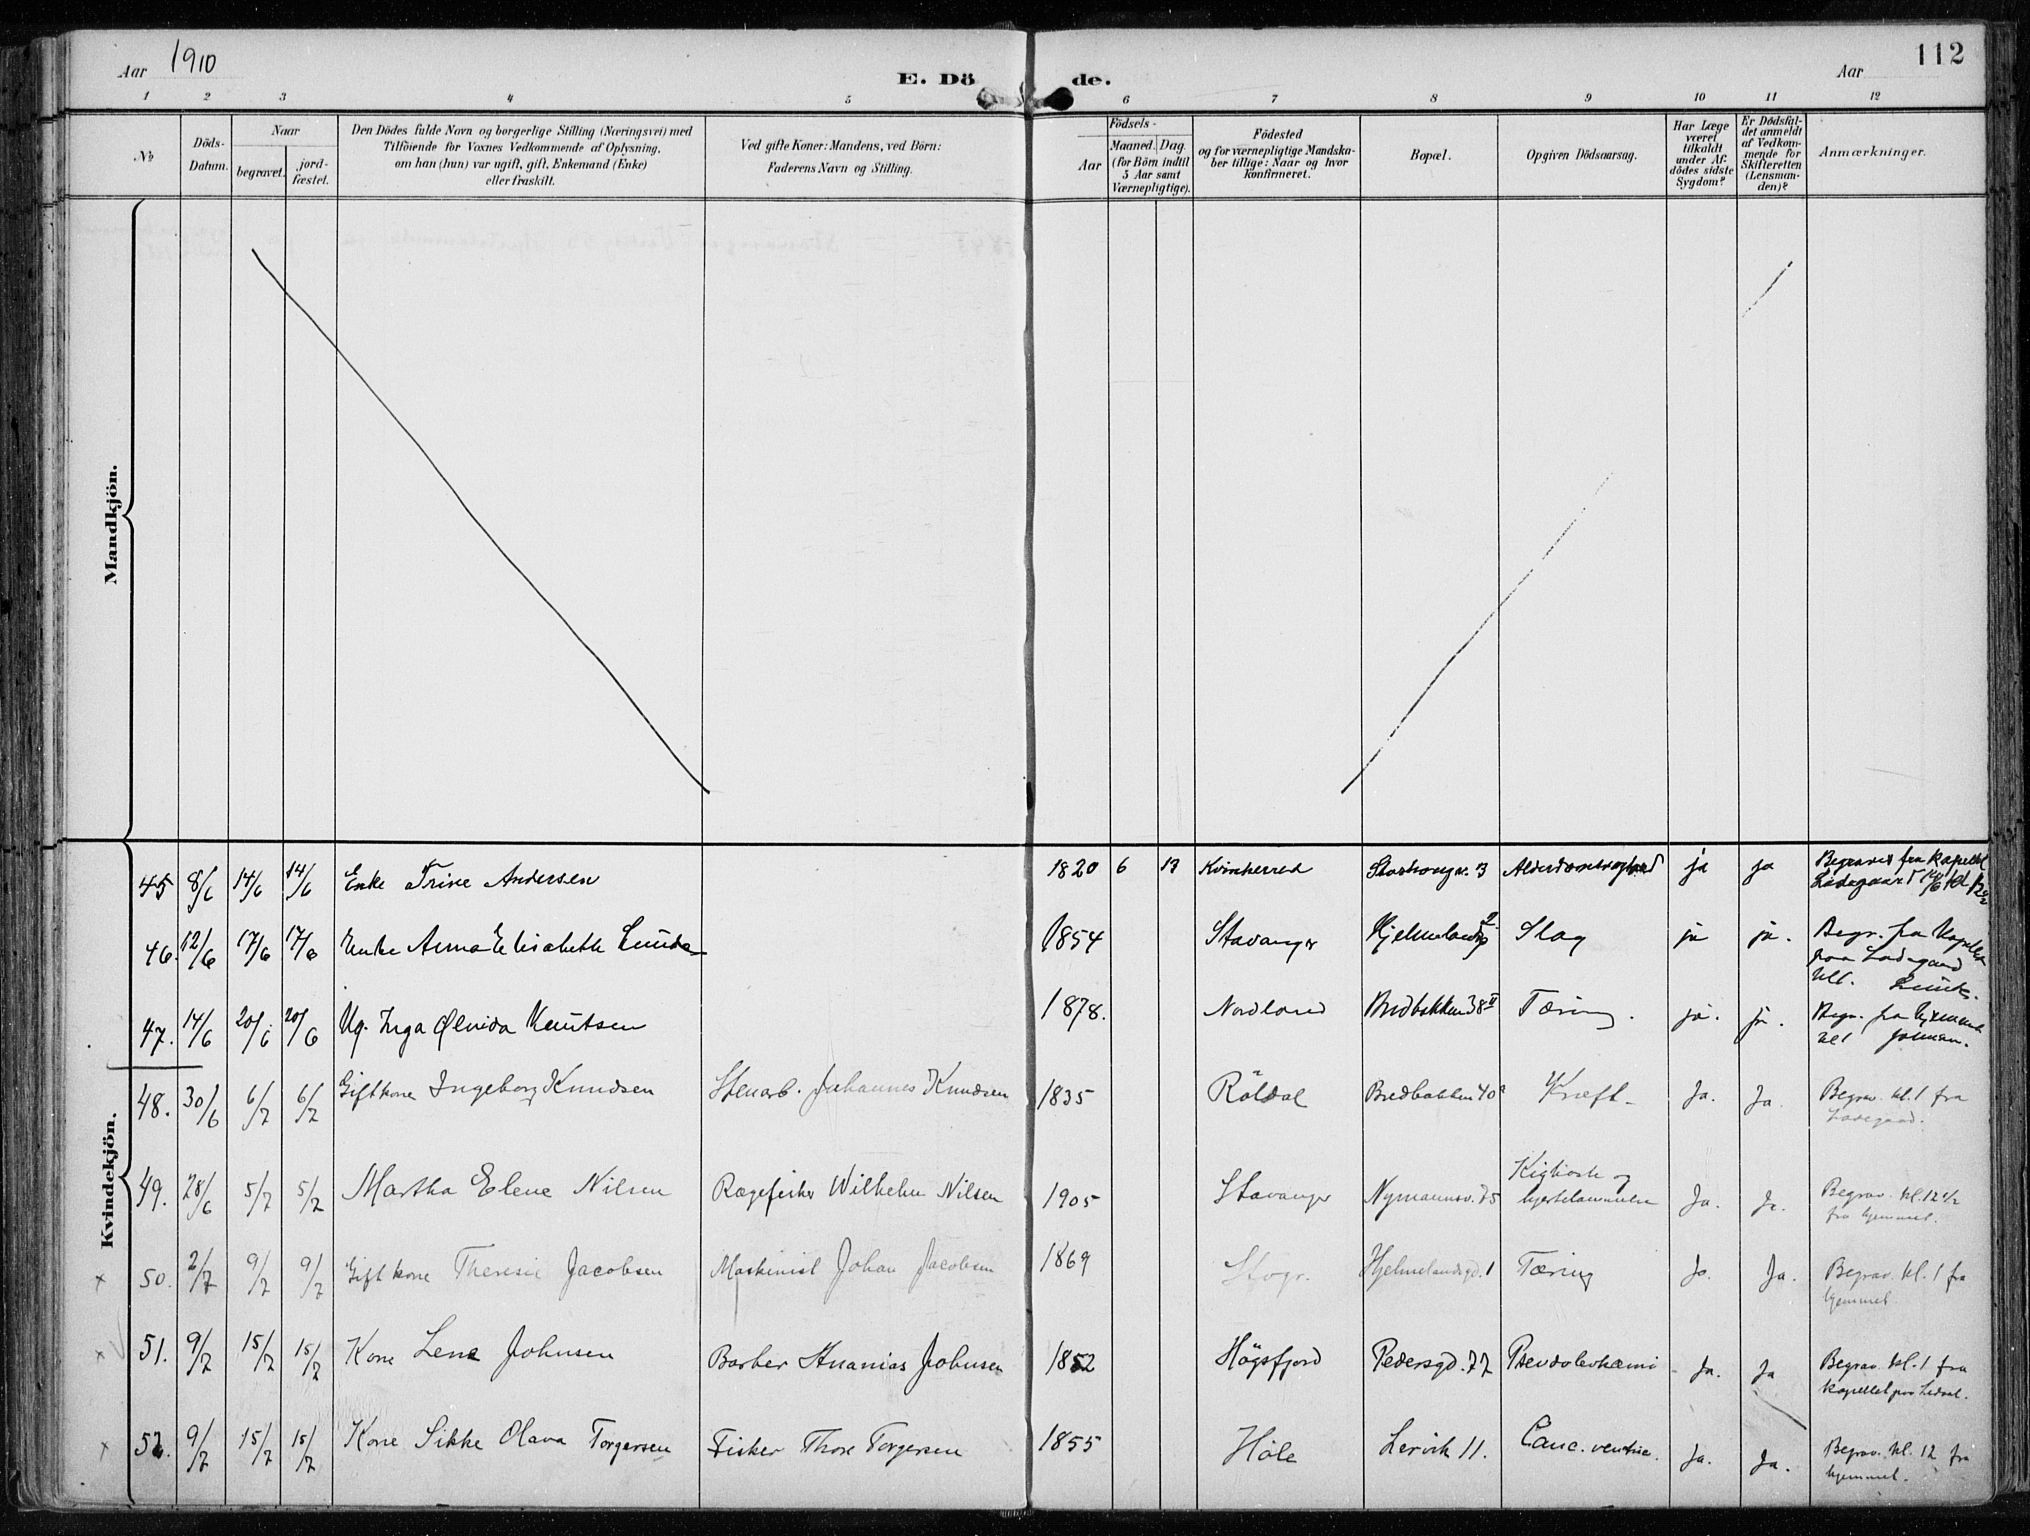 112
Aar 1910
E. Döde.
Aar
1 2 3 4 5 6 7 8 9 10 11 12
№
Döds-Datum.
Naar
begravet.
jord-fæstet.
Den Dödes fulde Navn og borgerlige Stilling (Næringsvei) med
Tilföiende for Voxnes Vedkommende af Oplysning,
om han (hun) var ugift, gift, Enkemand (Enke)
eller fraskilt.
Ved gifte Koner: Mandens, ved Börn:
Faderens Navn og Stilling.
Födsels-
Aar
Maaned. Dag.
(for Börn indtil
5 Aar samt
Værnepligtige).
Födested
og for værnepligtige Mandska-
ber tillige: Naar og hvor
Konfirmeret.
Bopæl.
Opgiven Dödsaarsag.
Har Læge
været
tilkaldt
under Af-
dødes sidste
Sygdom?
Er Dødsfal-
det anmeldt
af Vedkom-
mende for
Skifteretten
(Lensman-
den)?
Anmærkninger.
Mandkjön.
Kvindekjön.
45 8/6 14/6 14/6 Enke Trine Andersen 1820 6 13 Kvinherred 3 ja ja Begraves fra kapellet
Ladegaard 14/6 kl 12 1/2
46. 12/6 17/6 17/6 Enke Anna Elisabeth 1854 Stavanger Slag ja ja. Begr. fra Kapellet
paa Ladegaard
47. 14/6 20/6 20/6 Ug. Inga Knutsen 1878. Nordland Bredbakken 38 II Tæring. ja. ja. Begr. fra hjemmet
48. 30/6 6/7 6/7 Gift kone Ingeborg Knudsen Stenarb. Johannes Knudsen 1835 Röldal Bredbakken 40 Kræft - Ja. Ja Begrav. kl. 1 fra
Ladegaard.
49. 28/6 5/7 5/7 Martha Elene Nilsen Wilhelm Nilsen 1905 Stavanger Nymannsv. 75 Kighoste og
Ja. Ja. Begrav. kl. 12 1/2
fra hjemmet.
x 50. 2/7 9/7 9/7 Gift kone Theresie Jacobsen Maskinist Johan Jacobsen 1869 Stvgr. Hjelmelandsgd. 1 Tæring Ja. Ja. Begrav. kl. 1 fra
hjemmet.
x 51. 9/7 15/7 15/7 Kone Lena Johnsen Barber Ananias Johnsen 1852 Högsfjord Pedersgd. 77 Pseudolevkæmi - Ja. Ja Begrav. kl. 1 fra
kapellet paa
x 52. 9/7 15/7 15/7 Kone Sikke Olava Torgersen Fisker Thore Torgersen 1855 Höle Lervik 11. Canc. Ja. Ja. Begrav. kl. 12 fra
hjemmet.